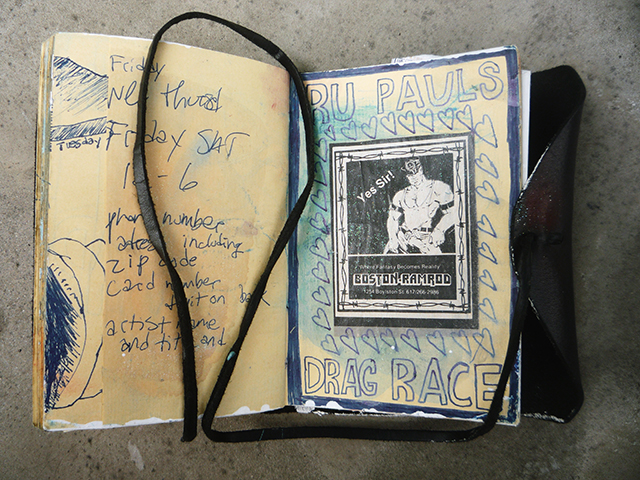 Friday
Thursd
Tuesday
Friday SAT
- 6
phone number
adress including
zip code
card number
artist name
and title and
RU PAULS
Yes Sir!
"Where Fantasy Becomes Reality"
BOSTON-RAMROD
1254 Boylston St. 617/266-2986
DRAG RACE